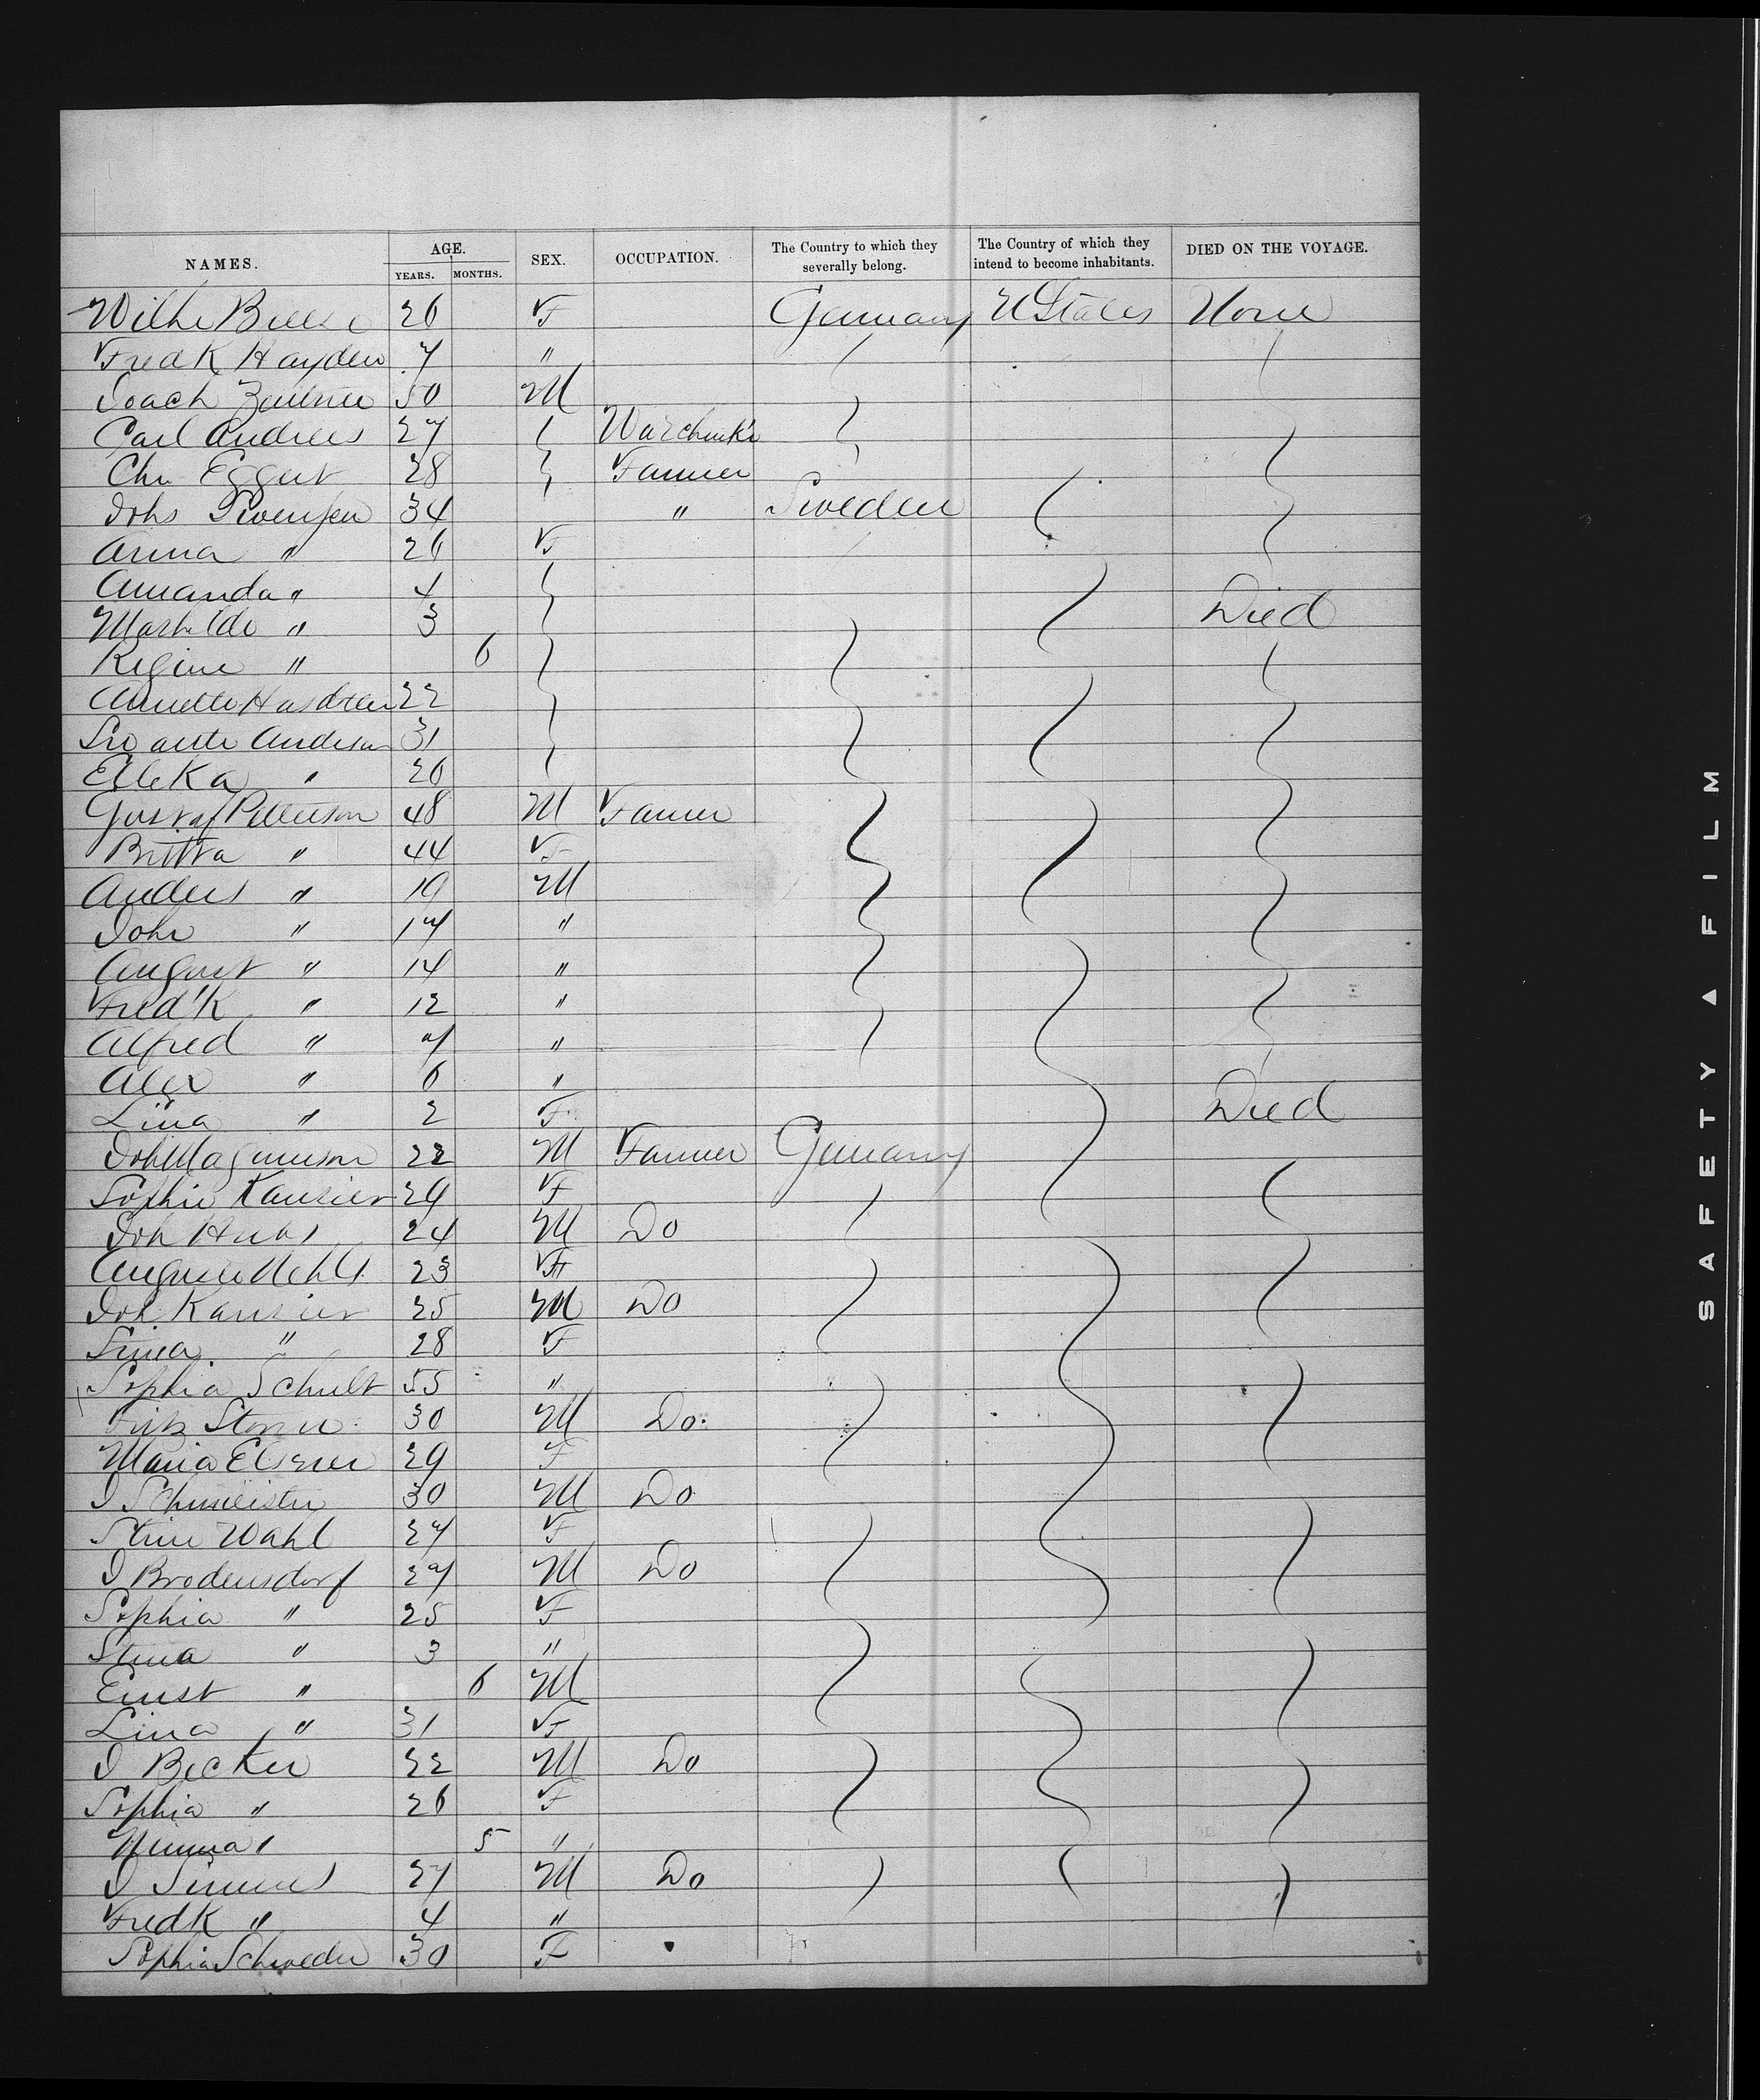 NAMES. AGE. YEARS. MONTHS. SEX. OCCUPATION. The Country to which they severally belong. The Country of which they intend to become inhabitants. DIED ON THE VOYAGE.
Wilhe 26 F Germany U States None
Fredk Hayden 7 "
Joach 50 M
Carl Andrees 27
Chr Eggert 28 Farmer
Johs Swensen 34 " Sweden
Anna " 26 F
Amanda " 4
Mathilde " 3 Died
Regine " 6
22
Andersen 31
" 26
Gustaf Petterson 48 M Farmer
Britta " 44 F
Anders " 19 M
John " 17 "
August " 14 "
Fred'k " 12 "
Alfred " 7 "
Alex " 6 "
Lina " 2 F Died
Joh Magnuson 22 M Farmer Germany
Sophie Kansier 29 F
Joh 24 M Do
23 F
Joh Kansier 25 M Do
" 28 F
Sophia Schult 55 "
30 M Do
Maria 29 F
J 30 M Do
Wahl 27 F
J Brodensdorf 27 M Do
Sophia " 25 F
Stina " 3 "
Ernst " 6 M
Lina " 31 F
J Becker 22 M Do
Sophia " 26 F
" 5 "
J 27 M Do
Fredk " 4 "
Sophia Schroeder 30 F
SAFETY ▲ FILM